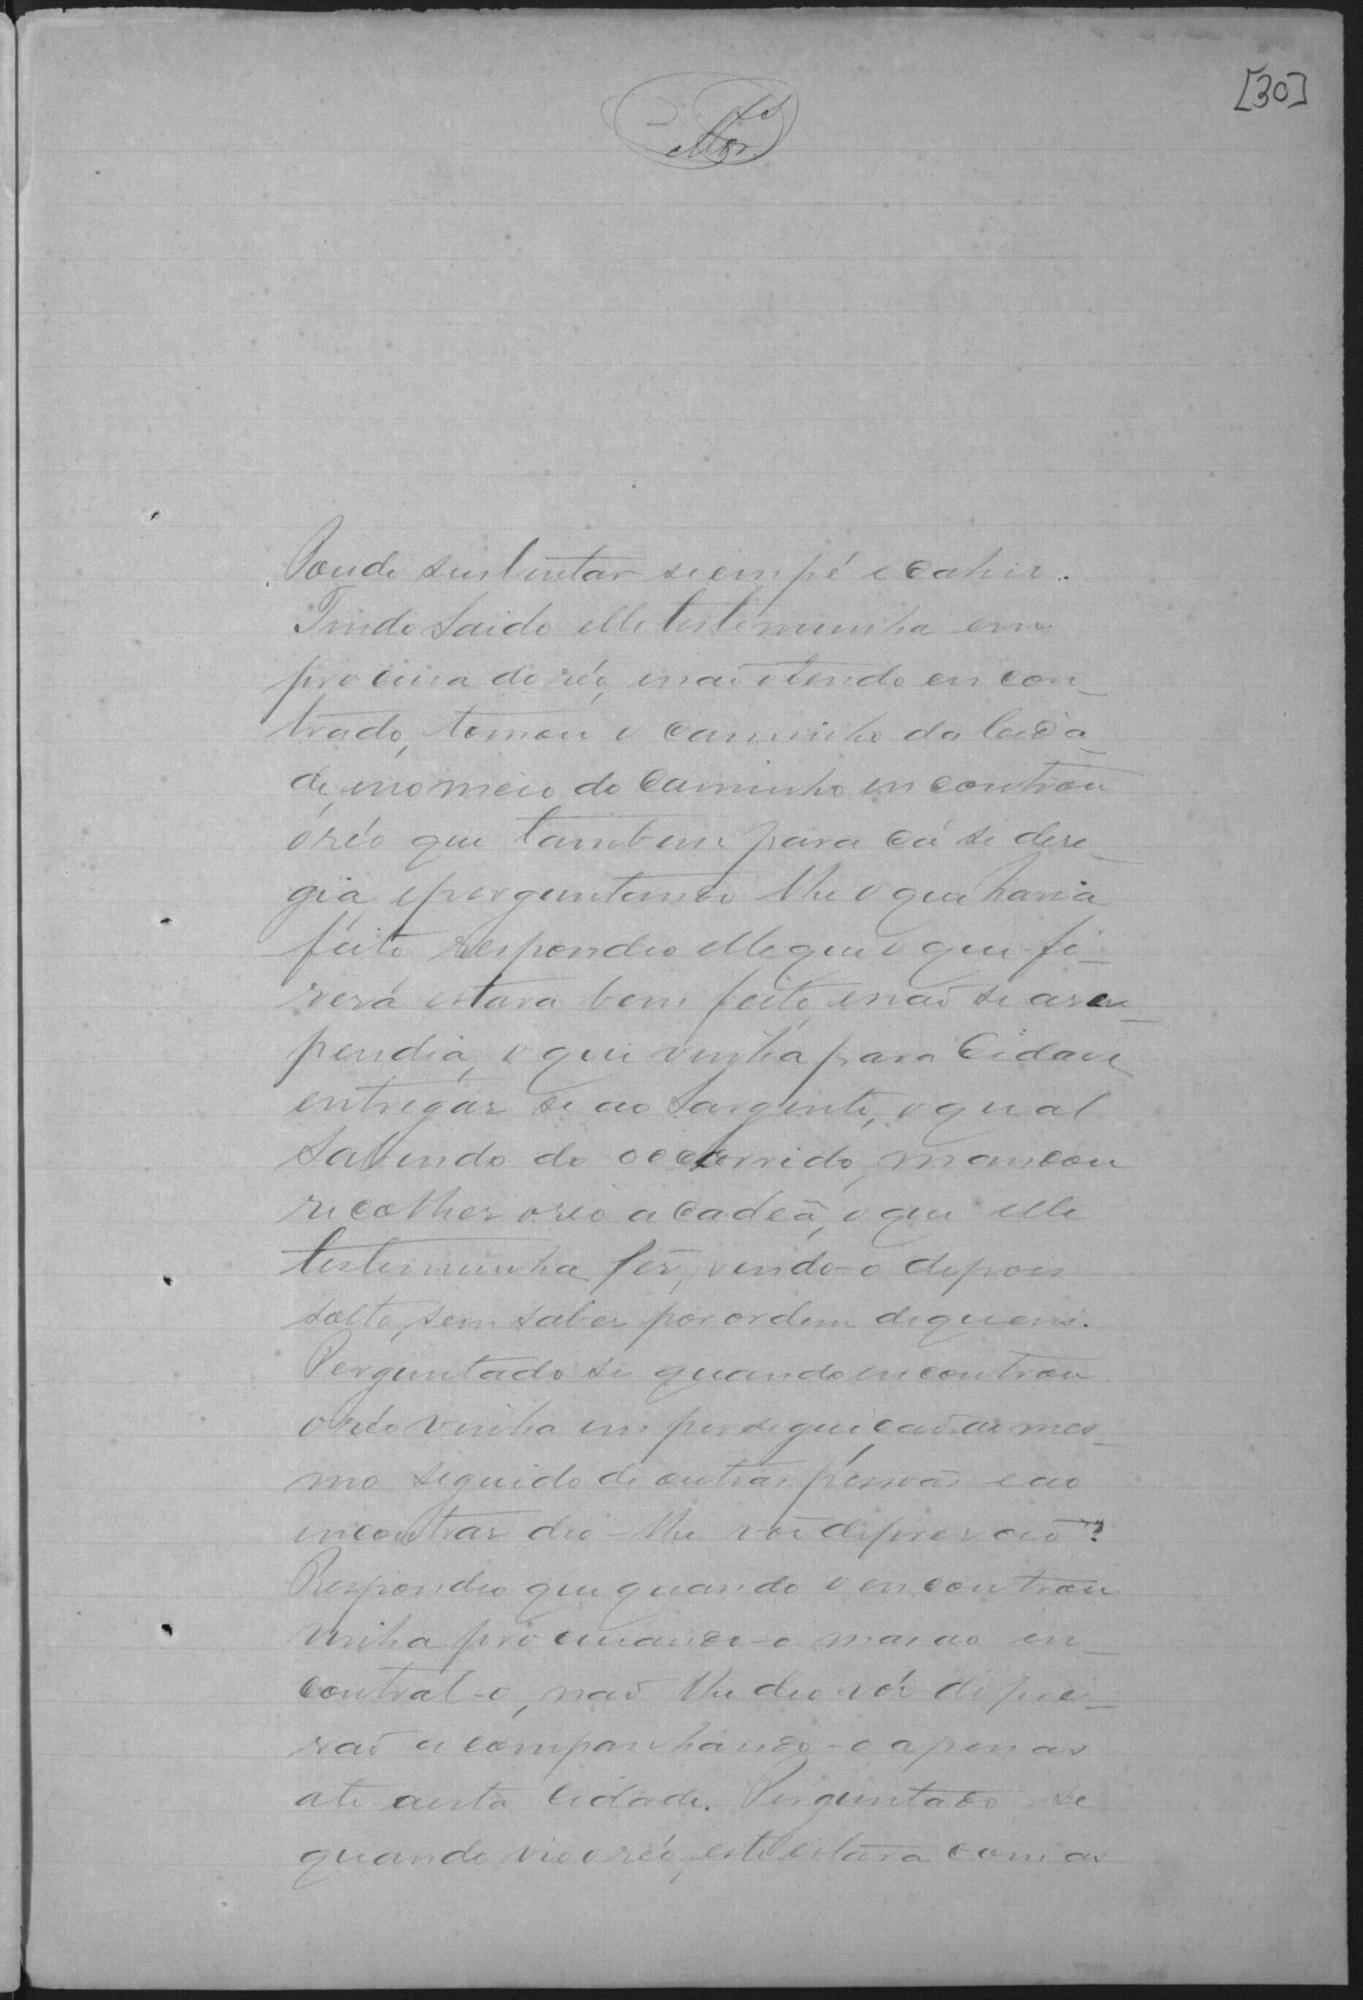 [30]
Poude sustentar se em pé e cahir.
Tendo saido elle testemunha em
procura do réo, e naõ o tendo encon_
trado, tomou o caminho da Cida_
de, e no meio do caminho encontrou
o réo que tambem para cá se dere_
gia, e perguntando lhe o que havia
feito respondeo elle que o que fi_
zera estava bem feito, e naõ se aren_
pendia, e que vinha para Cidade
entregar se ao Sargento, o qual
sabendo do occorrido, mandou
recolher o réo a cadeã, o que elle
testemunha fez, vendo-o depois
solto, sem saber por ordem de quem.
Perguntado se quando encontrou
o réo vinha em perseguicaõ ao mes_
mo seguido de outras pessoas e ao
encontrar deo-lhe voz de prezaõ?
Respondeo que quando o encontrou
vinha procurando-o mas ao en_
contral-o, naõ lhe deo voz de pri_
zaõ acompanhando-o apenas
ate aesta Cidade. Perguntado se
quando vio o réo, este estava com as